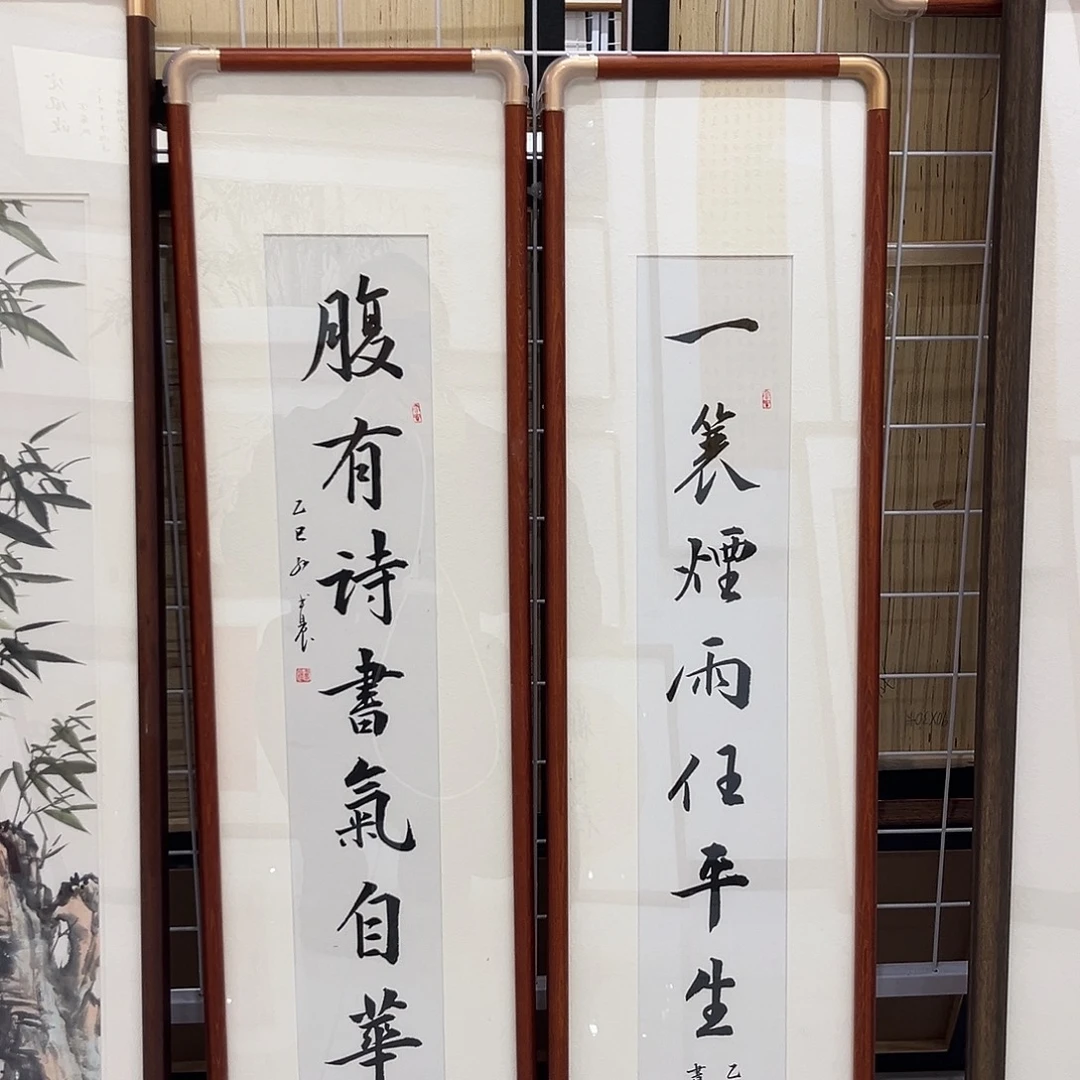 一蓑煙雨任平生
乙
書
腹有詩書氣自華
乙巳